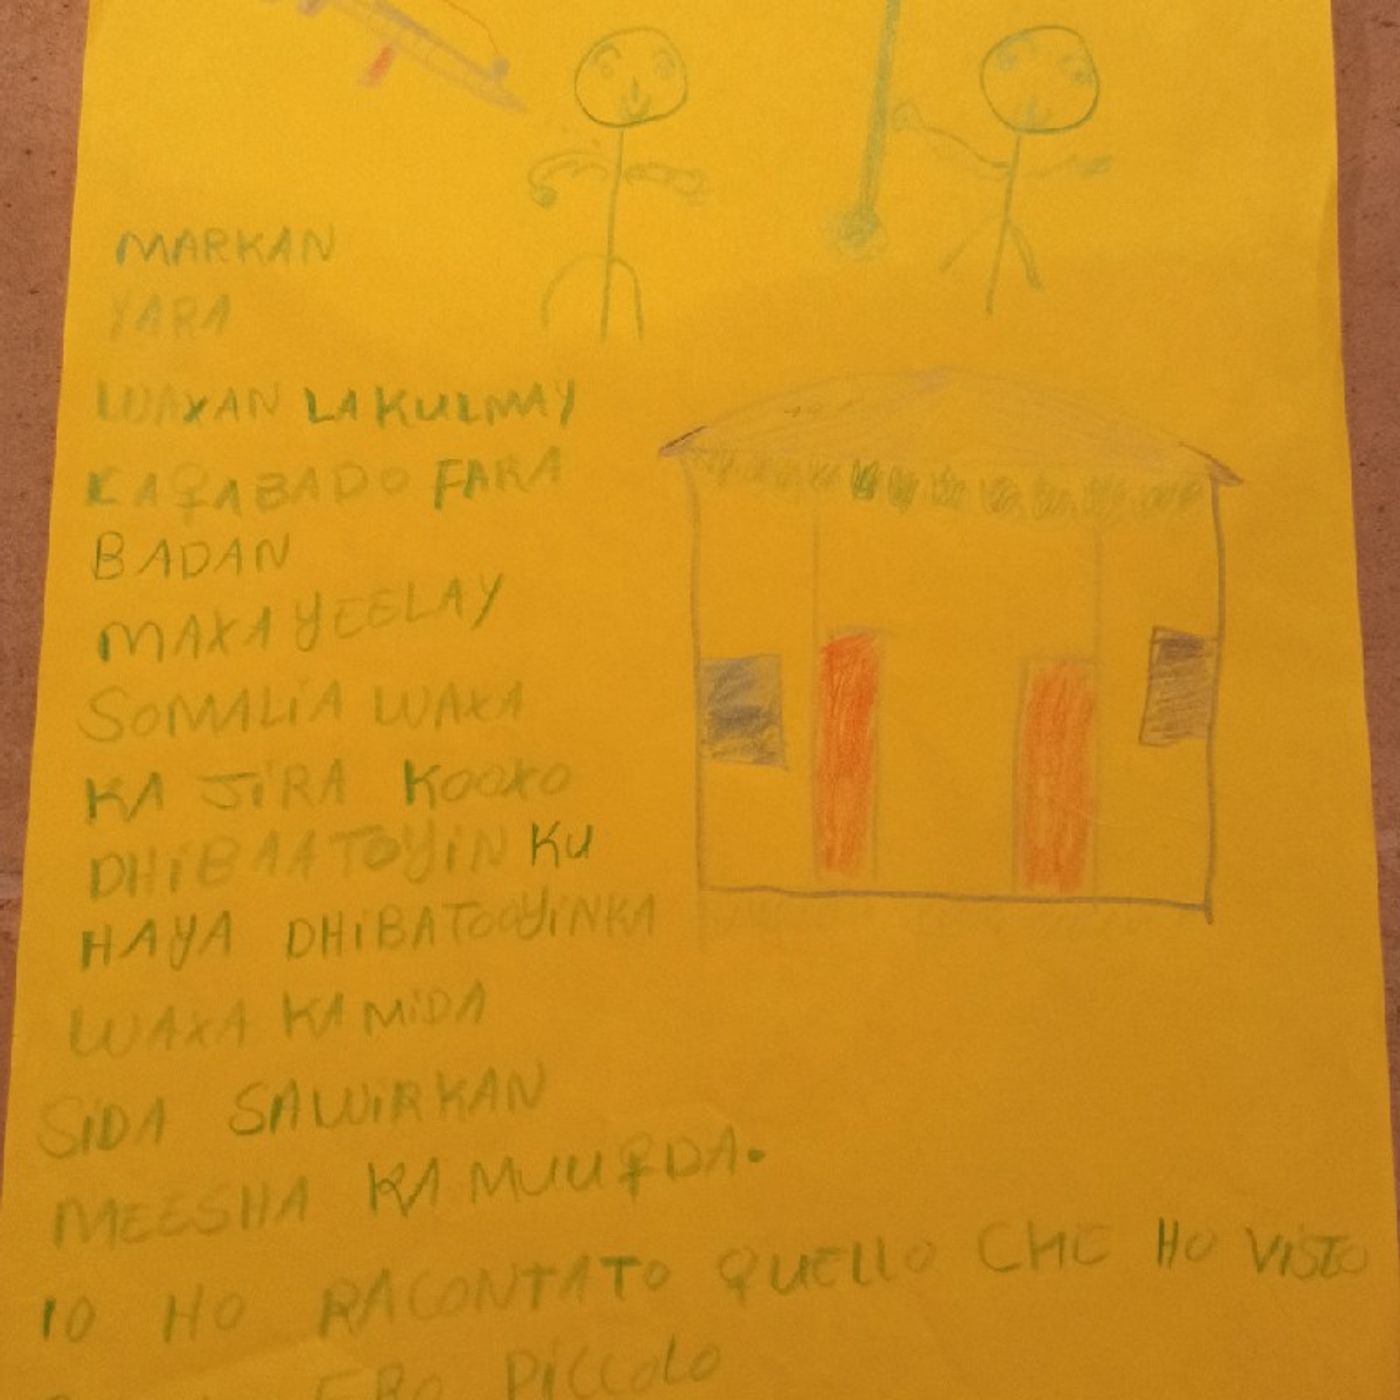 MARKAN
YARA
WAXAN LA KULMAY
KAQABADO FARA
BADAN
MAXAYEELAY
SOMALIA WAXA
KA JIRA KOOXO
DHIBAATOYIN KU
HAYA DHIBATOOYINKA
WAXA KAMIDA
SIDA SAWIRKAN
MEESHA KA MUUQDA.
IO HO RACONTATO QUELLO CHE HO VISTO
ERO PICCOLO